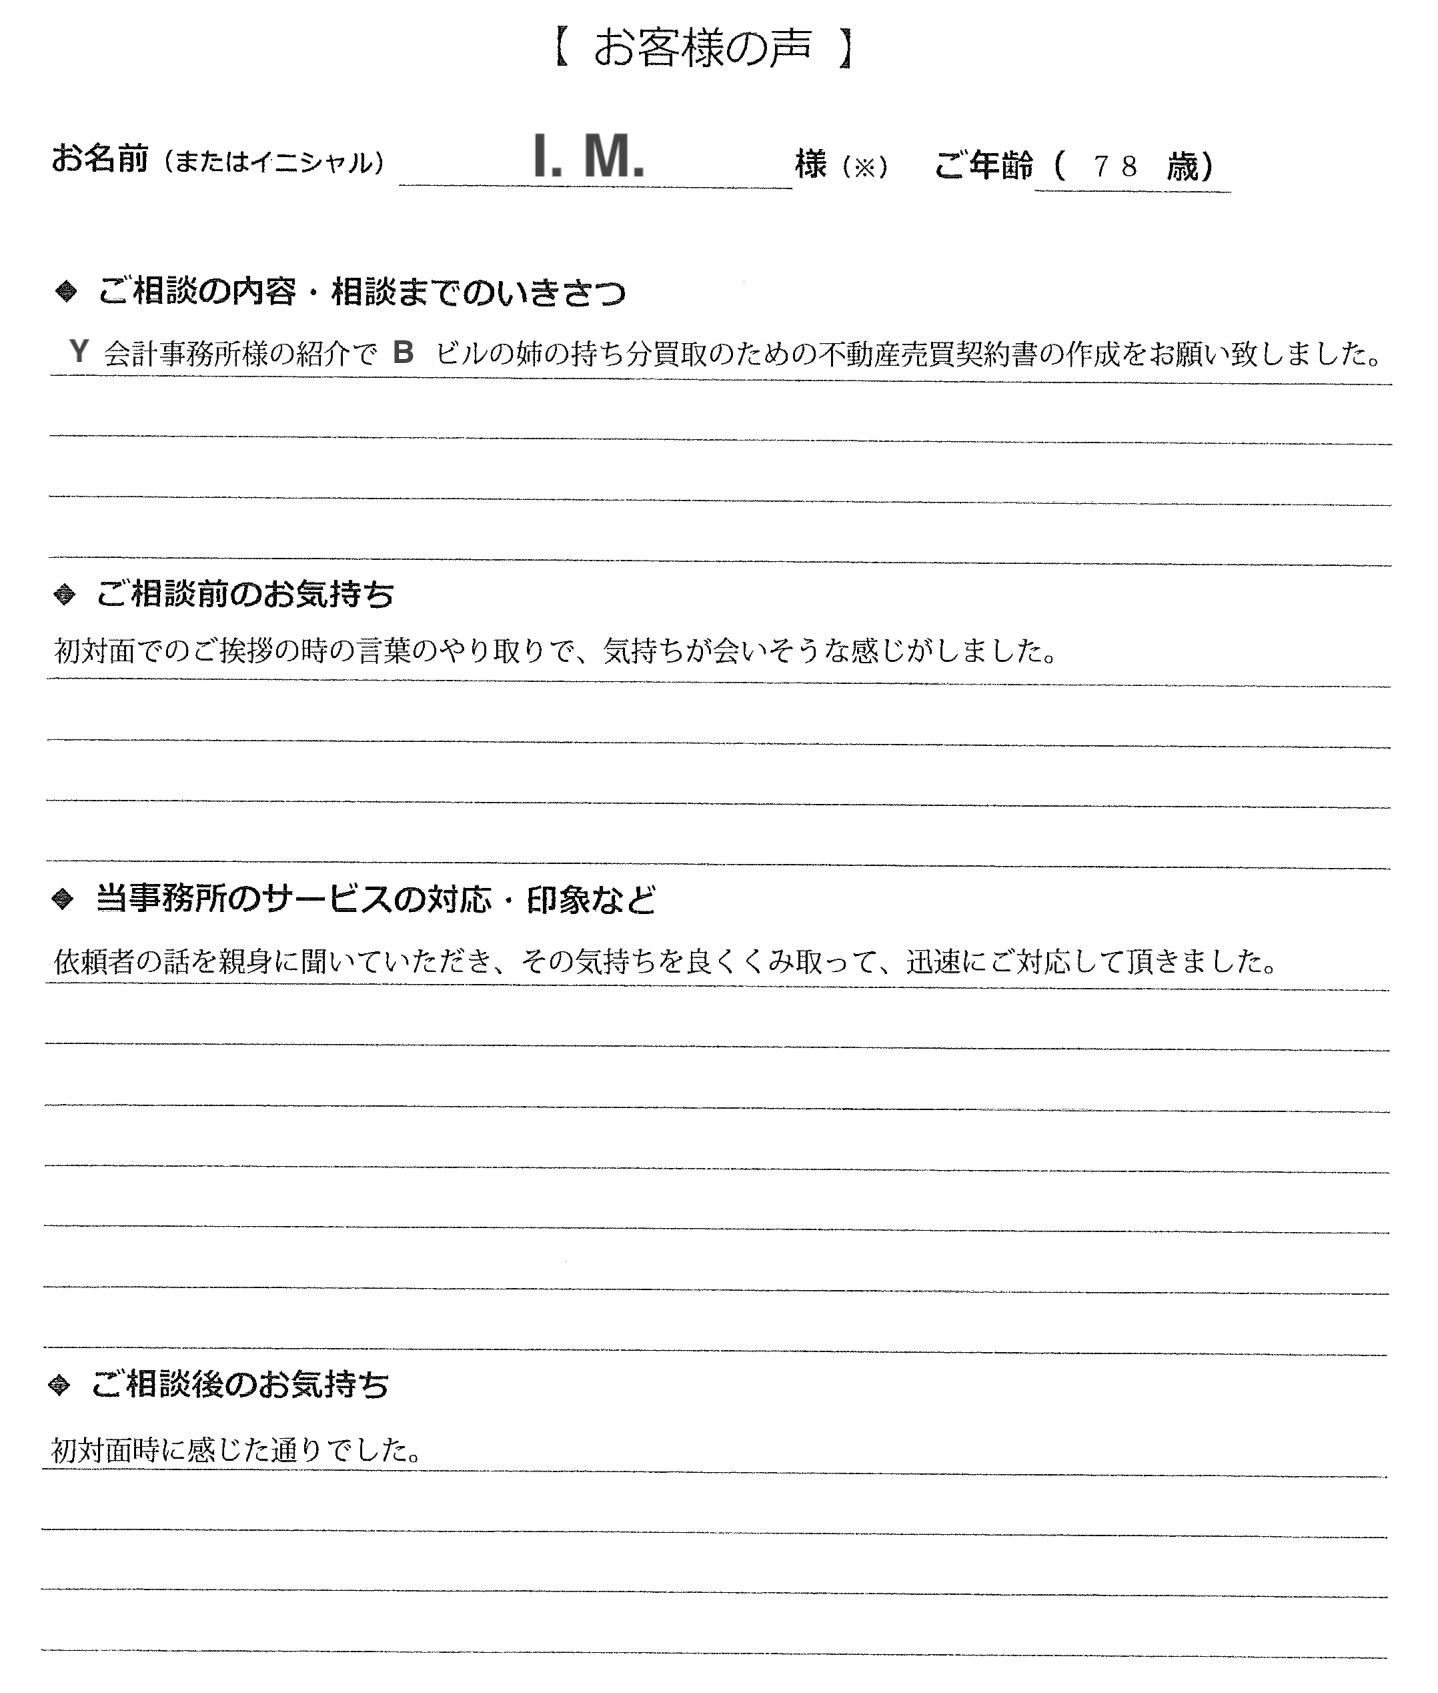 【 お客様の声 】
お名前（またはイニシャル） I. M. 様（※） ご年齢（ 78 歳）
◆ ご相談の内容・相談までのいきさつ
Y 会計事務所様の紹介で B ビルの姉の持ち分買取のための不動産売買契約書の作成をお願い致しました。
◆ ご相談前のお気持ち
初対面でのご挨拶の時の言葉のやり取りで、気持ちが会いそうな感じがしました。
◆ 当事務所のサービスの対応・印象など
依頼者の話を親身に聞いていただき、その気持ちを良くくみ取って、迅速にご対応して頂きました。
◆ ご相談後のお気持ち
初対面時に感じた通りでした。